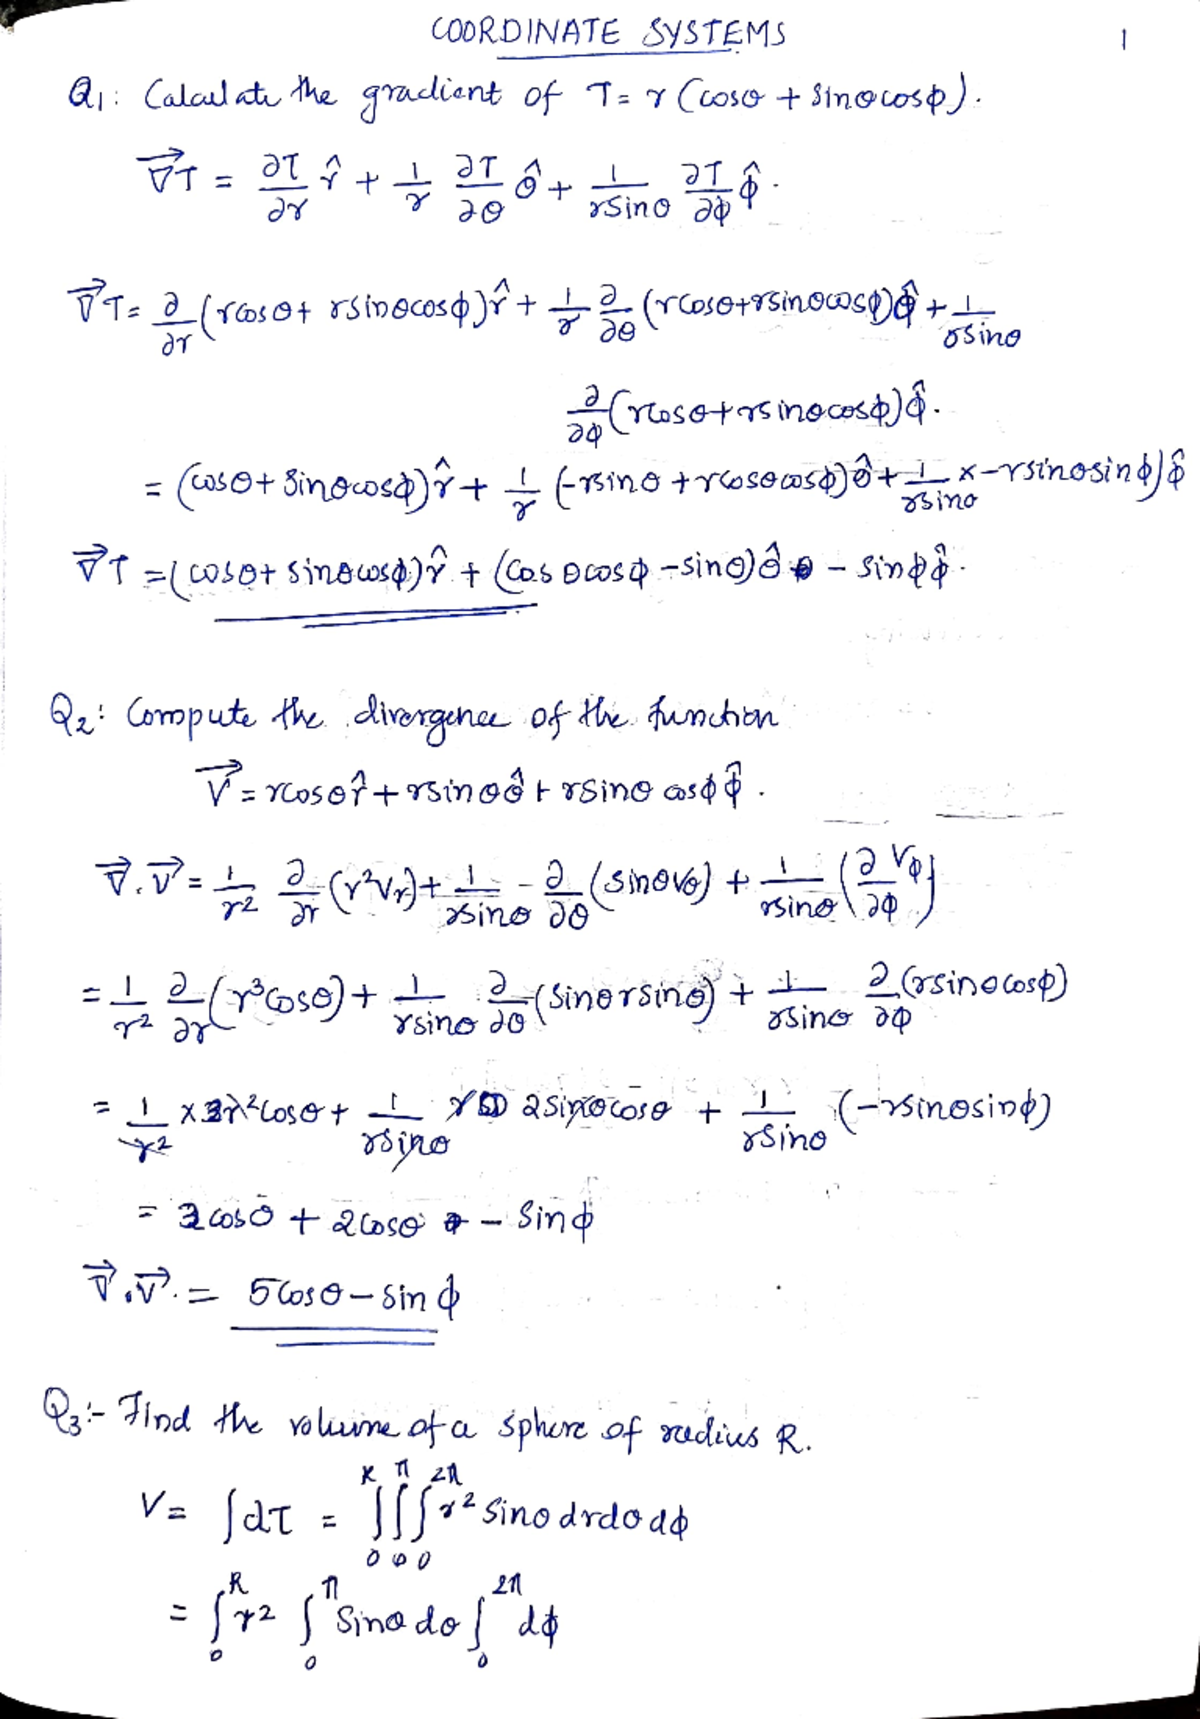 COORDINATE SYSTEMS
1
Q1: Calculate the gradient of T = r (cosθ + sinθcosφ).
∇⃗T = ∂T/∂r r̂ + 1/r ∂T/∂θ θ̂ + 1/rsinθ ∂T/∂φ φ̂.
∇⃗T = ∂/∂r (rcosθ + rsinθcosφ) r̂ + 1/r ∂/∂θ (rcosθ+rsinθcosφ) θ̂ + 1/rsinθ
∂/∂φ (rcosθ+rsinθcosφ) φ̂.
= (cosθ + sinθcosφ) r̂ + 1/r (-rsinθ + rcosθcosφ) θ̂ + 1/rsinθ x -rsinθsinφ) φ̂
∇⃗T = (cosθ + sinθcosφ) r̂ + (cosθcosφ - sinθ) θ̂ - sinφ φ̂.
Q2: Compute the divergence of the function
V⃗ = rcosθ r̂ + rsinθ θ̂ + rsinθ cosφ φ̂.
∇⃗.V⃗ = 1/r² ∂/∂r (r²Vr) + 1/rsinθ - ∂/∂θ (sinθVθ) + 1/rsinθ (∂Vφ/∂φ)
= 1/r² ∂/∂r (r³cosθ) + 1/rsinθ ∂/∂θ (sinθ rsinθ) + 1/rsinθ ∂/∂φ (rsinθcosφ)
= 1/r² x 3r²cosθ + 1/rsinθ r 2sinθcosθ + 1/rsinθ (-rsinθsinφ)
= 3cosθ + 2cosθ - sinφ
∇⃗.V⃗. = 5cosθ - sinφ
Q3:- Find the volume of a sphere of radius R.
V = ∫dτ = ∫₀ᴿ∫₀^π∫₀^2π r² sinθ dr dθ dφ
= ∫₀ᴿ r² ∫₀^π sinθ dθ ∫₀^2π dφ